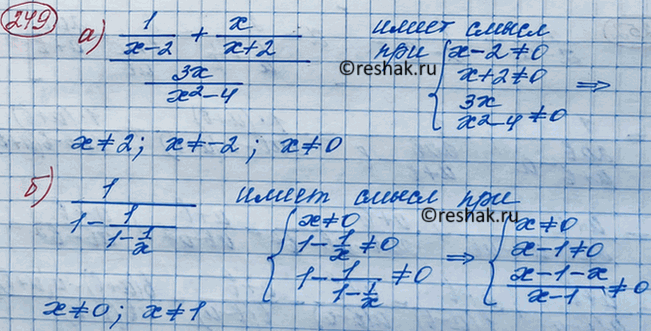 249
а) (1/(x-2) + x/(x+2)) / (3x/(x²-4)) имеет смысл
при { x-2≠0
x+2≠0 ⇒
3x/(x²-4) ≠0
©reshak.ru
x≠2; x≠-2; x≠0
б) 1/(1-1/(1-1/x)) имеет смысл при
{ x≠0 ; 1-1/x ≠0 ; 1-1/(1-1/x) ≠0 ⇒ { x≠0 ; x-1≠0 ; (x-1-x)/(x-1) ≠0
©reshak.ru
x≠0; x≠1